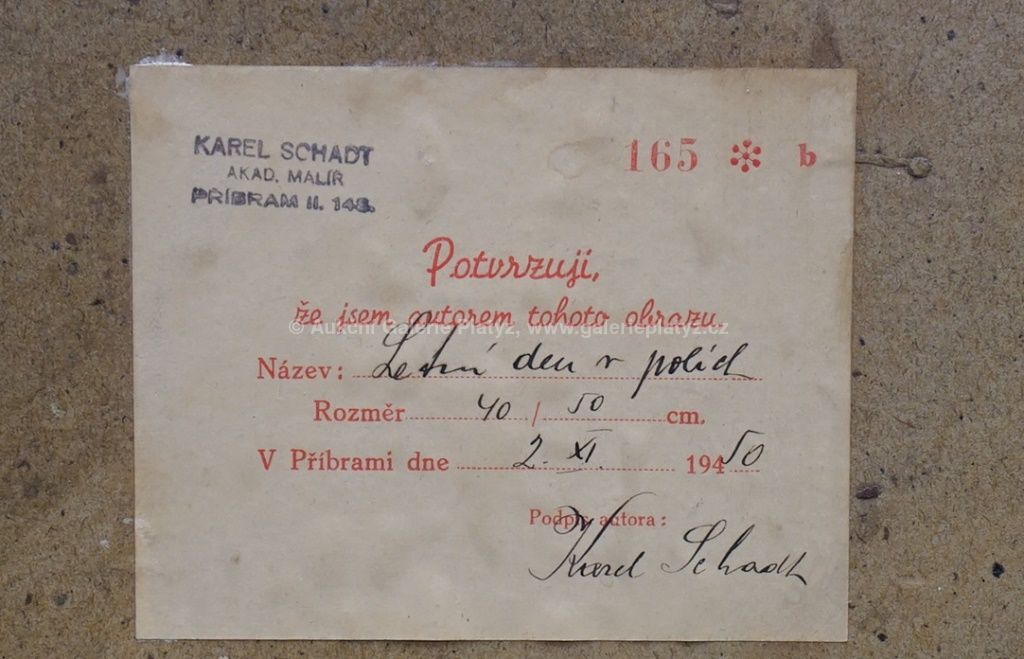 KAREL SCHADT
AKAD. MALÍŘ
PŘÍBRAM II. 148.
165 * b
Potvrzuji,
že jsem autorem tohoto obrazu.
© Aukční Galerie Platýz, www.galerieplatyz.cz
Název: Letní den v polích
Rozměr 40 / 50 cm.
V Příbrami dne 2. XI. 1950
Podpis autora:
Karel Schadt